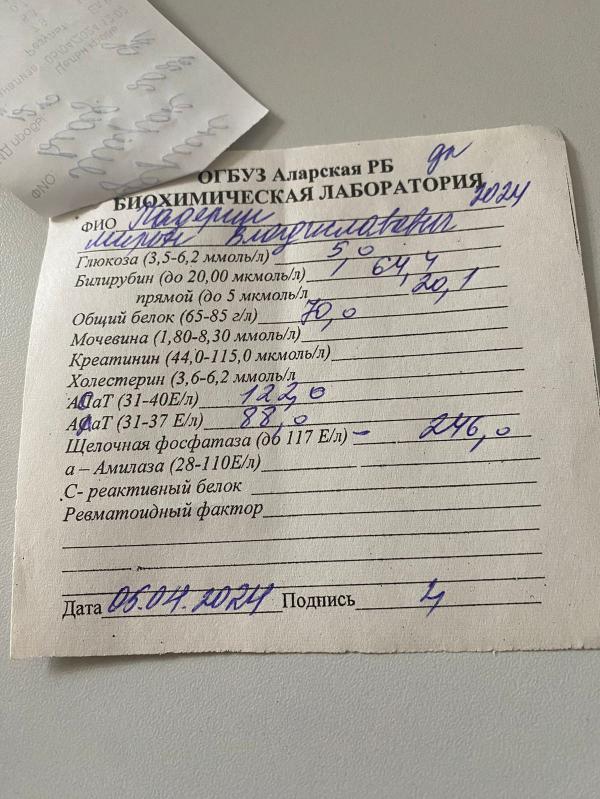 ОГБУЗ Аларская РБ
БИОХИМИЧЕСКАЯ ЛАБОРАТОРИЯ
ФИО 2024
Мирон Владиславович
Глюкоза (3,5-6,2 ммоль/л) 5,0
Билирубин (до 20,00 мкмоль/л) 64,4
прямой (до 5 мкмоль/л 20,1
Общий белок (65-85 г/л) 70,0
Мочевина (1,80-8,30 ммоль/л)
Креатинин (44,0-115,0 мкмоль/л)
Холестерин (3,6-6,2 ммоль/л
АСаТ (31-40Е/л) 122,0
АЛаТ (31-37 Е/л) 88,0
Щелочная фосфатаза (до 117 Е/л) – 246,0
а – Амилаза (28-110Е/л)
С- реактивный белок
Ревматоидный фактор
Дата 05.04.2024 Подпись